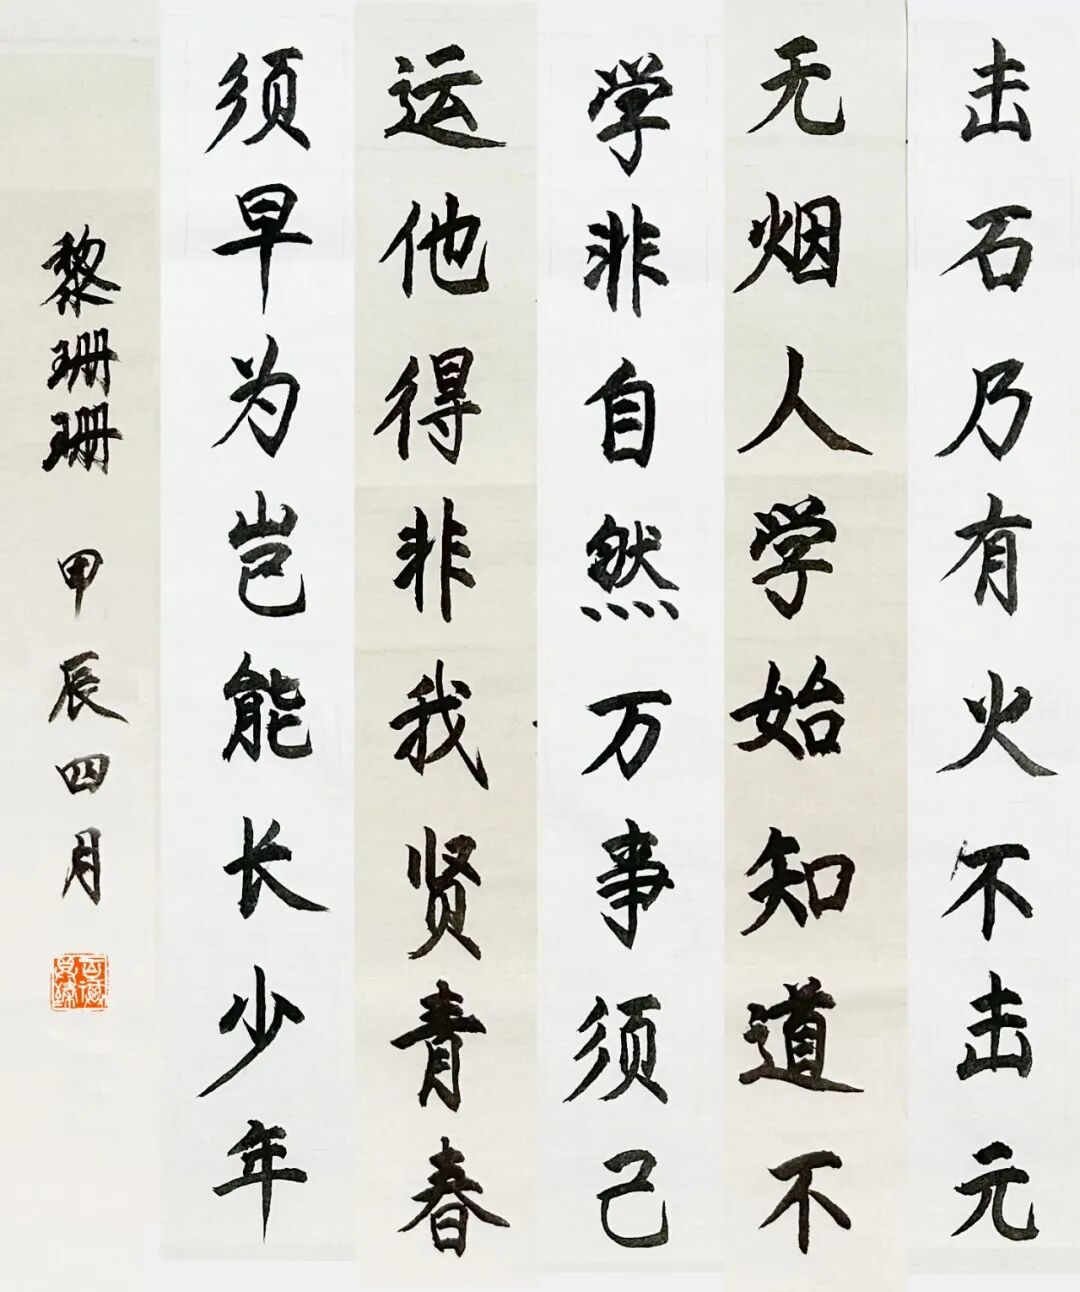 击石乃有火不击元
无烟人学始知道不
学非自然万事须己
运他得非我贤青春
须早为岂能长少年
黎珊珊 甲辰四月